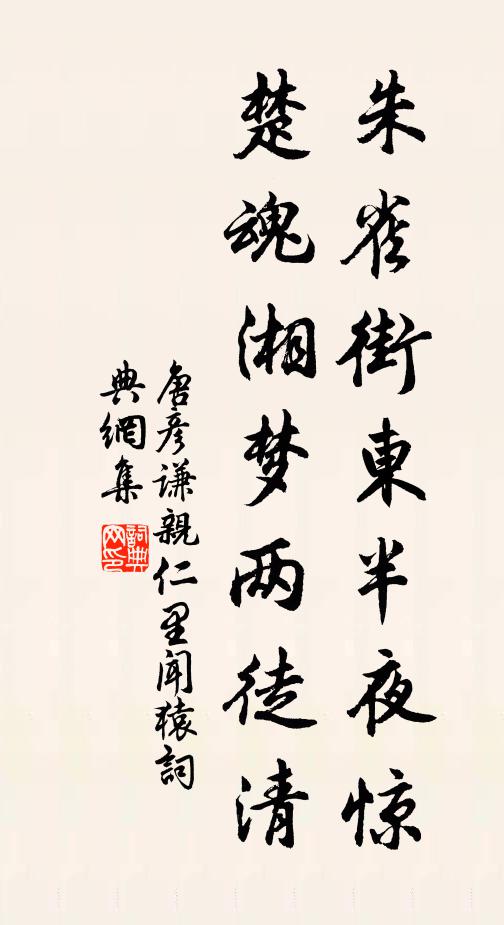 朱雀街東半夜惊
楚魂湘梦两徒清
唐彦谦親仁里闻猿詞
典網集
詞典網印